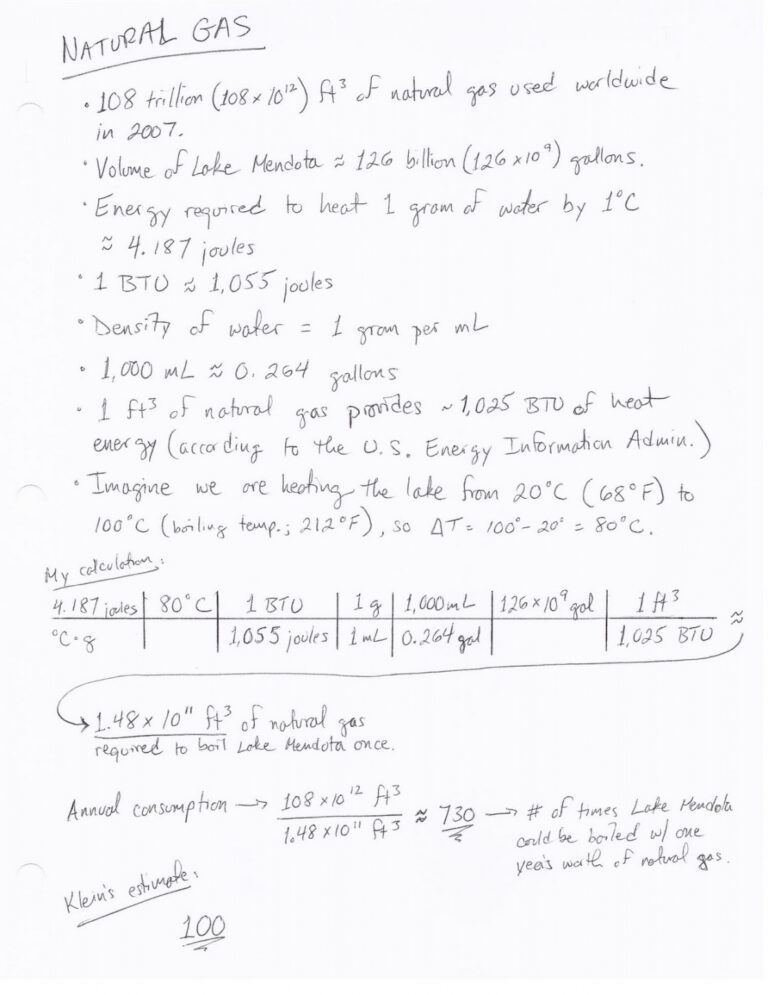 NATURAL GAS
• 108 trillion (108 × 10¹²) ft³ of natural gas used worldwide
in 2007.
• Volume of Lake Mendota ≈ 126 billion (126 × 10⁹) gallons.
• Energy required to heat 1 gram of water by 1°C
≈ 4.187 joules
• 1 BTU ≈ 1,055 joules
• Density of water = 1 gram per mL
• 1,000 mL ≈ 0.264 gallons
• 1 ft³ of natural gas provides ~1,025 BTU of heat
energy (according to the U.S. Energy Information Admin.)
• Imagine we are heating the lake from 20°C (68°F) to
100°C (boiling temp.; 212°F), so ΔT = 100° - 20° = 80°C.
My calculation:
4.187 joules | 80°C | 1 BTU | 1 g | 1,000 mL | 126 × 10⁹ gal | 1 ft³
°C·g | | 1,055 joules | 1 mL | 0.264 gal | | 1,025 BTU ≈
→ 1.48 × 10¹¹ ft³ of natural gas
required to boil Lake Mendota once.
Annual consumption → 108 × 10¹² ft³ / 1.48 × 10¹¹ ft³ ≈ 730 → # of times Lake Mendota
could be boiled w/ one
year's worth of natural gas.
Klein's estimate:
100